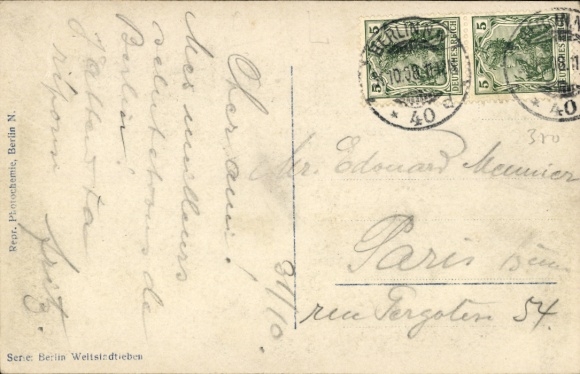 Cher ami!
Mes meilleurs
salutations de
Berlin!
J'attends ta
réponse
Fritz.
31/10.
Mr. Edouard Meunier
Paris
rue Pergolèse 54.
300
5 DEUTSCHES REICH 5
5 DEUTSCHES REICH 5
BERLIN
10.08.11
* 40 d
BERLIN
* 40
Repr. Photochemie, Berlin N.
Serie: Berlin Weltstadtleben